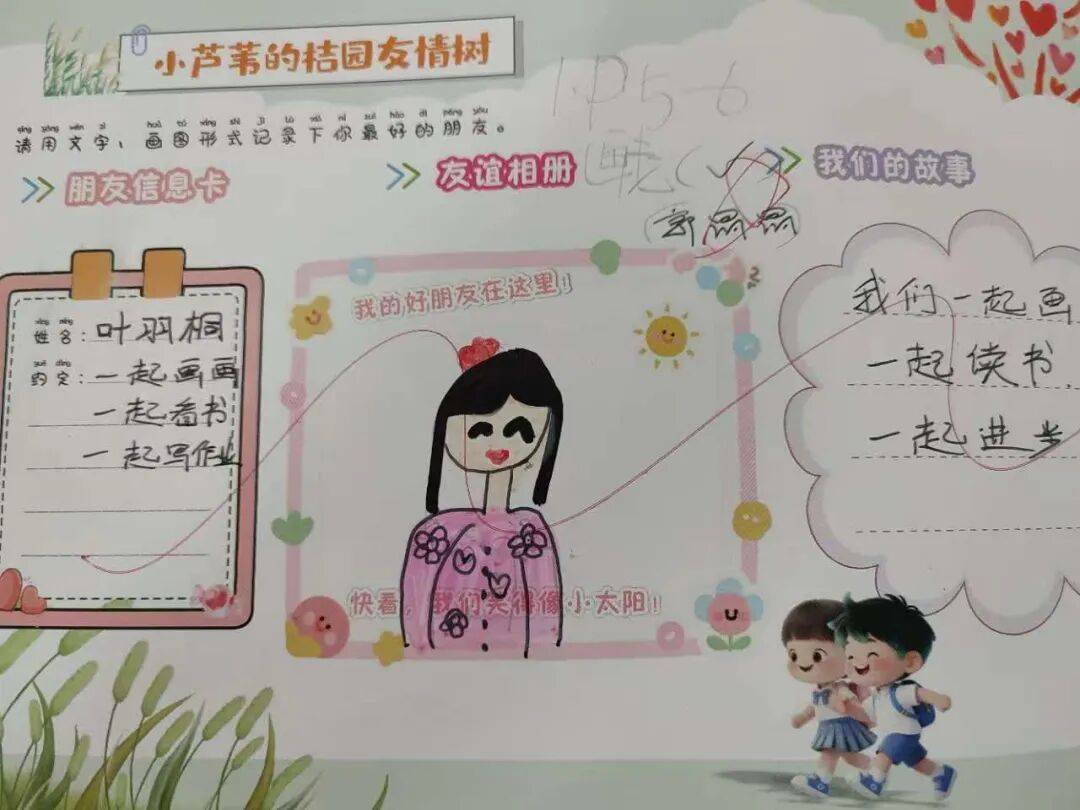 小芦苇的桔园友情树
1.P5-6
qǐng yòng wén zì huà tú xíng shì jì lù xià nǐ zuì hǎo de péng yǒu
请用文字、画图形式记录下你最好的朋友。
朋友信息卡
友谊相册
我们的故事
xìng míng
姓名:叶羽桐
yuē dìng
约定:一起画画
一起看书
一起写作业
我的好朋友在这里!
快看，我们笑得像小太阳!
我们一起画
一起读书
一起进步